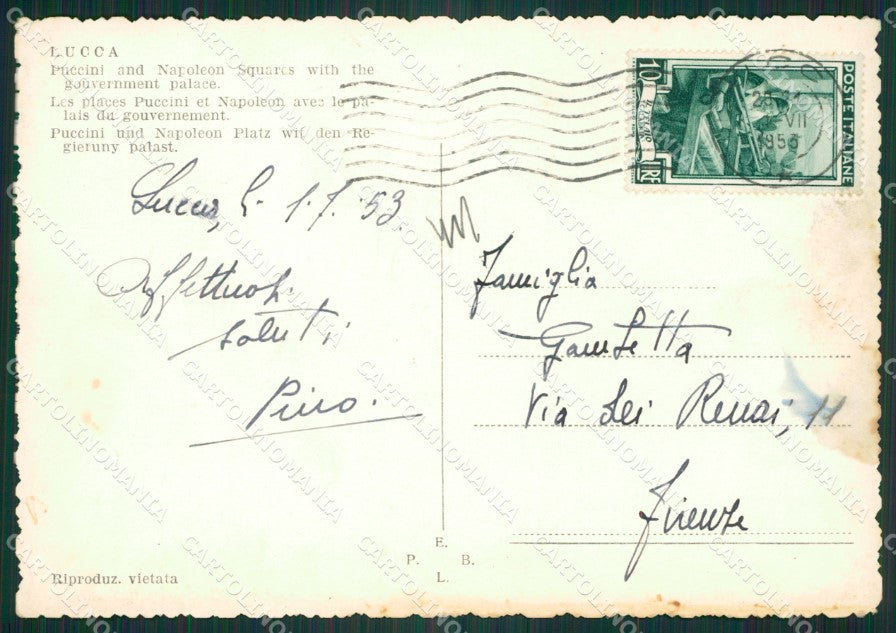 LUCCA
Puccini and Napoleon Squares with the
gouvernment palace.
Les places Puccini et Napoléon avec le pa-
lais du gouvernement.
Puccini und Napoleon Platz wit den Re-
gieruny palast.
10
LIRE
POSTE ITALIANE
VII
1953
Lucca, li 1.7.53.
Affettuosi
saluti
Pino.
Famiglia
Gambetta
Via dei Renai, 11
Firenze
E.
P. B.
L.
Riproduz. vietata
CARTOLINOMANIA